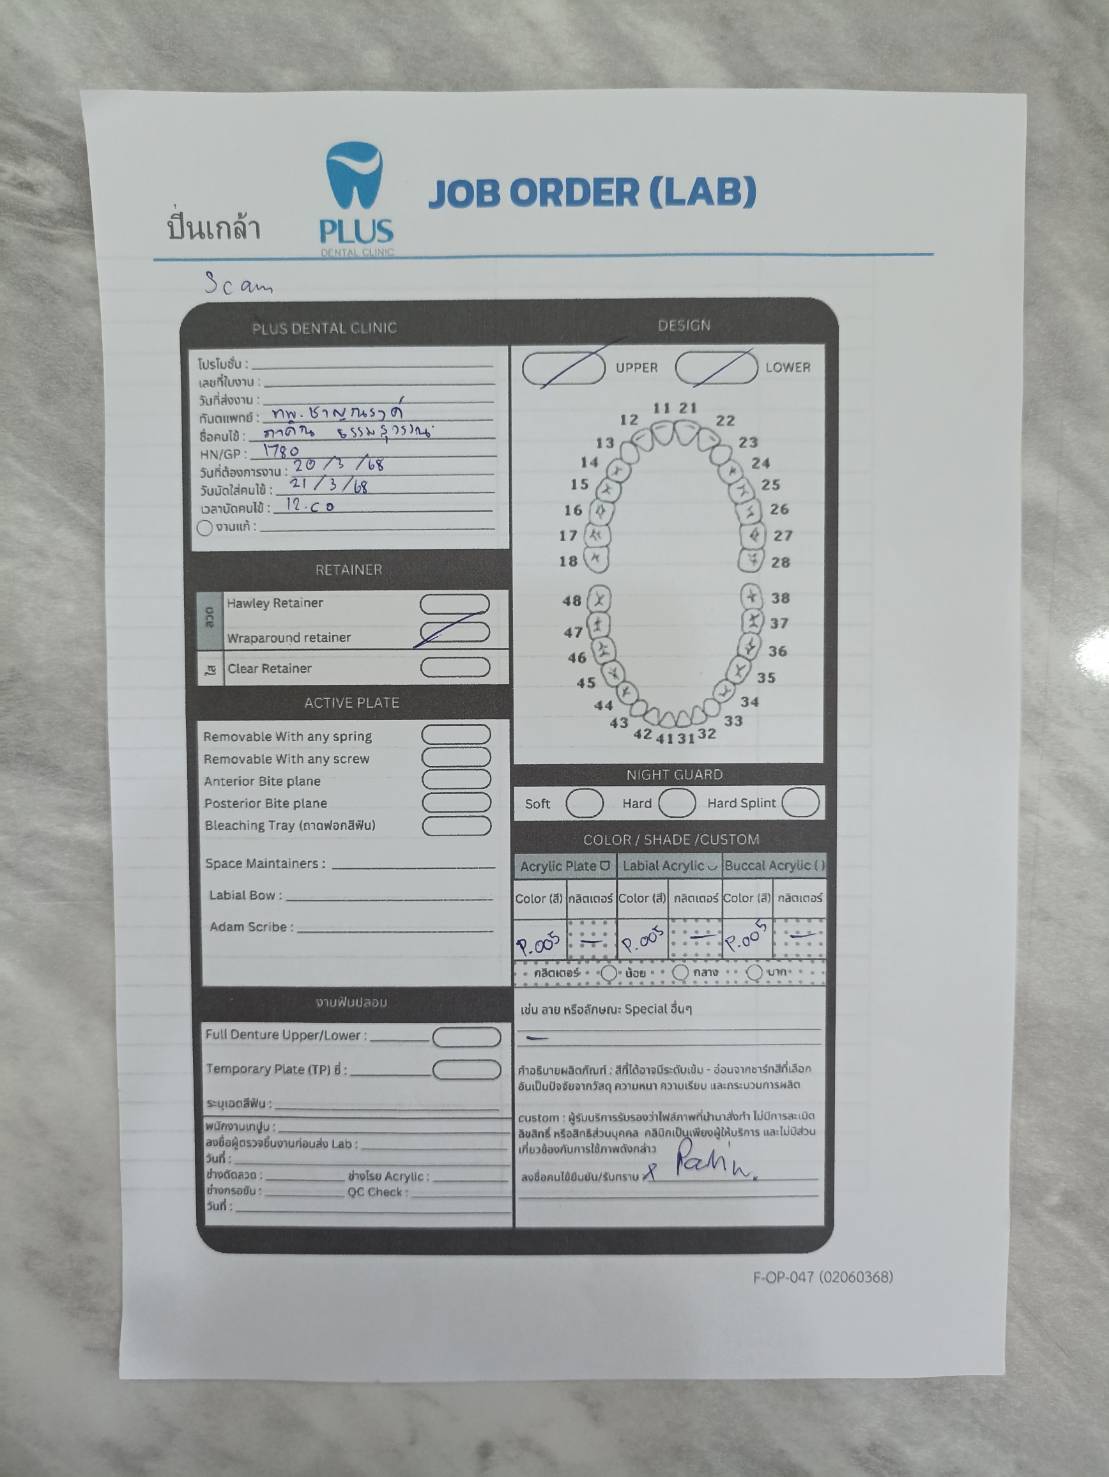 ปิ่นเกล้า
PLUS
DENTAL CLINIC
JOB ORDER (LAB)
Scan
PLUS DENTAL CLINIC
โปรโมชั่น :
เลขที่ใบงาน :
วันที่ส่งงาน :
ทันตแพทย์ : ทพ.
ชื่อคนไข้ : ภาคิน
HN/GP : 1780
วันที่ต้องการงาน : 20/3/68
วันนัดใส่คนไข้ : 21/3/68
เวลานัดคนไข้ : 12.00
งานแก้ :
RETAINER
ลวด
Hawley Retainer
Wraparound retainer
ใส
Clear Retainer
ACTIVE PLATE
Removable With any spring
Removable With any screw
Anterior Bite plane
Posterior Bite plane
Bleaching Tray (ถาดฟอกสีฟัน)
Space Maintainers :
Labial Bow :
Adam Scribe :
งานฟันปลอม
Full Denture Upper/Lower :
Temporary Plate (TP) ซี่ :
ระบุเฉดสีฟัน :
พนักงานเทปูน :
ลงชื่อผู้ตรวจชิ้นงานก่อนส่ง Lab :
วันที่ :
ช่างดัดลวด : ช่างโรย Acrylic :
ช่างกรอขัด : QC Check :
วันที่ :
DESIGN
UPPER LOWER
11 21
12 22
13 23
14 24
15 25
16 26
17 27
18 28
48 38
47 37
46 36
45 35
44 34
43 33
42 41 31 32
NIGHT GUARD
Soft Hard Hard Splint
COLOR / SHADE /CUSTOM
Acrylic Plate Labial Acrylic Buccal Acrylic ( )
Color (สี) กลิตเตอร์ Color (สี) กลิตเตอร์ Color (สี) กลิตเตอร์
P.005 — P.005 — P.005 —
กลิตเตอร์ น้อย กลาง มาก
เช่น ลาย หรือลักษณะ Special อื่นๆ
—
คำอธิบายผลิตภัณฑ์ : สีที่ได้อาจมีระดับเข้ม - อ่อนจากชาร์ทสีที่เลือก
อันเป็นปัจจัยจากวัสดุ ความหนา ความเรียบ และกระบวนการผลิต
custom : ผู้รับบริการรับรองว่าไฟล์ภาพที่นำมาสั่งทำ ไม่มีการละเมิด
ลิขสิทธิ์ หรือสิทธิส่วนบุคคล คลินิกเป็นเพียงผู้ให้บริการ และไม่มีส่วน
เกี่ยวข้องกับการใช้ภาพดังกล่าว
ลงชื่อคนไข้ยืนยัน/รับทราบ x
F-OP-047 (02060368)